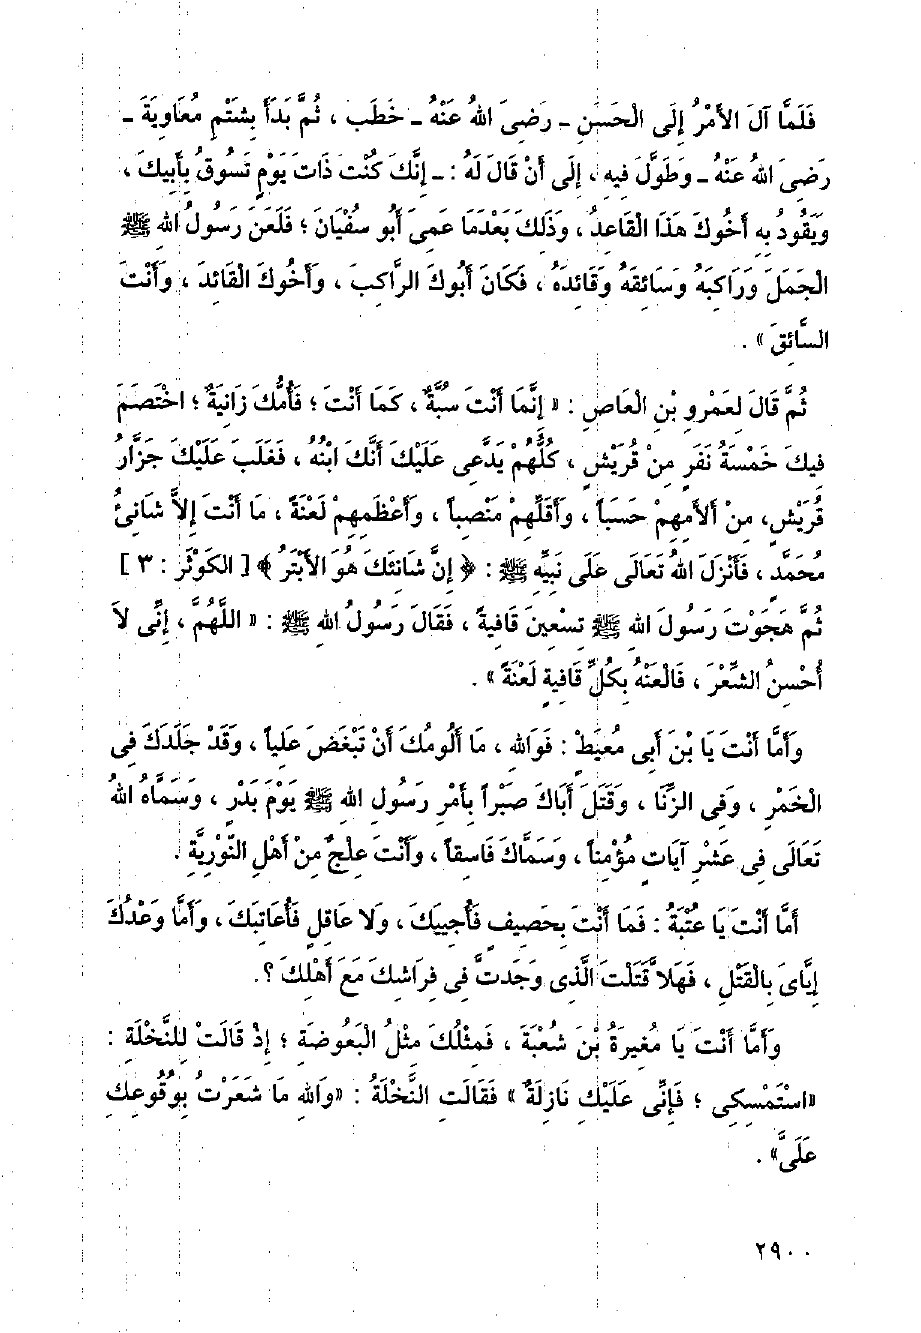 فَلَمَّا آلَ الأَمْرُ إِلَى الْحَسَنِ ـ رَضِىَ اللهُ عَنْهُ ـ خَطَب ، ثُمَّ بَدَأَ بِشَتْمِ مُعَاوِيَةَ ـ
رَضِىَ اللهُ عَنْهُ ـ وَطَوَّلَ فِيهِ ، إِلَى أَنْ قَالَ لَهُ : ـ إِنَّكَ كُنْتَ ذَاتَ يَوْمٍ تَسُوقُ بِأَبِيكَ ،
وَيَقُودُ بِهِ أَخُوكَ هَذَا الْقَاعِدُ ، وَذَلِكَ بَعْدَمَا عَمِىَ أَبُو سُفْيَانَ ؛ فَلَعَنَ رَسُولُ اللهِ ﷺ
الْجَمَلَ وَرَاكِبَهُ وَسَائِقَهُ وَقَائِدَهُ ، فَكَانَ أَبُوكَ الرَّاكِبَ ، وَأَخُوكَ الْقَائِدَ ، وَأَنْتَ
السَّائِقَ » .
ثُمَّ قَالَ لِعَمْرِو بْنِ الْعَاصِ : « إِنَّمَا أَنْتَ سُبَّةٌ ، كَمَا أَنْتَ ؛ فَأُمُّكَ زَانِيَةٌ ؛ اخْتَصَمَ
فِيكَ خَمْسَةُ نَفَرٍ مِنْ قُرَيْشٍ ، كُلُّهُمْ يَدَّعِى عَلَيْكَ أَنَّكَ ابْنُهُ ، فَغَلَبَ عَلَيْكَ جَزَّارُ
قُرَيْشٍ، مِنْ أَلأَمِهِمْ حَسَبَاً ، وَأَقَلِّهِمْ مَنْصِبَاً ، وَأَعْظَمِهِمْ لَعْنَةً ، مَا أَنْتَ إِلاَّ شَانِئُ
مُحَمَّدٍ ، فَأَنْزَلَ اللهُ تَعَالَى عَلَى نَبِيِّهِ ﷺ : ﴿ إِنَّ شَانِئَكَ هُوَ الأَبْتَرُ ﴾ [ الكَوْثَر : ٣ ]
ثُمَّ هَجَوْتَ رَسُولَ اللهِ ﷺ تِسْعِينَ قَافِيةً ، فَقَالَ رَسُولُ اللهِ ﷺ : « اللَّهُمَّ ، إِنِّى لاَ
أُحْسِنُ الشِّعْرَ ، فَالْعَنْهُ بِكُلِّ قَافِيةٍ لَعْنَةً » .
وَأَمَّا أَنْتَ يَا بْنَ أَبِى مُعَيْطٍ : فَوَاللهِ ، مَا أَلُومُكَ أَنْ تَبْغَضَ عَلِياً ، وَقَدْ جَلَدَكَ فِى
الْخَمْرِ ، وَفِى الزِّنَا ، وَقَتَلَ أَبَاكَ صَبْراً بِأَمْرِ رَسُولِ اللهِ ﷺ يَوْمَ بَدْرٍ ، وَسَمَّاهُ اللهُ
تَعَالَى فِى عَشْرِ آيَاتٍ مُؤْمِناً ، وَسَمَّاكَ فَاسِقاً ، وَأَنْتَ عِلْجٌ مِنْ أَهْلِ النُّوْرِيَّةِ .
أَمَّا أَنْتَ يَا عُتْبَةُ : فَمَا أَنْتَ بِحَصِيفٍ فَأُجِيبَكَ ، وَلا عَاقِلٍ فَأُعَاتِبَكَ ، وَأَمَّا وَعْدُكَ
إِيَّاىَ بِالْقَتْلِ ، فَهَلاَّ قَتَلْتَ الَّذِى وَجَدتَّ فِى فِرَاشِكَ مَعَ أَهْلِكَ ؟.
وَأَمَّا أَنْتَ يَا مُغِيرَةُ بْنَ شُعْبَةَ ، فَمِثْلُكَ مِثْلُ الْبَعُوضَةِ ؛ إِذْ قَالَتْ لِلنَّخْلَةِ :
«اسْتَمْسِكِى ؛ فَإِنِّى عَلَيْكِ نَازِلَةٌ » فَقَالَتِ النَّخْلَةُ : «وَاللهِ مَا شَعَرْتُ بِوُقُوعِكِ
عَلَىَّ» .
٢٩٠٠